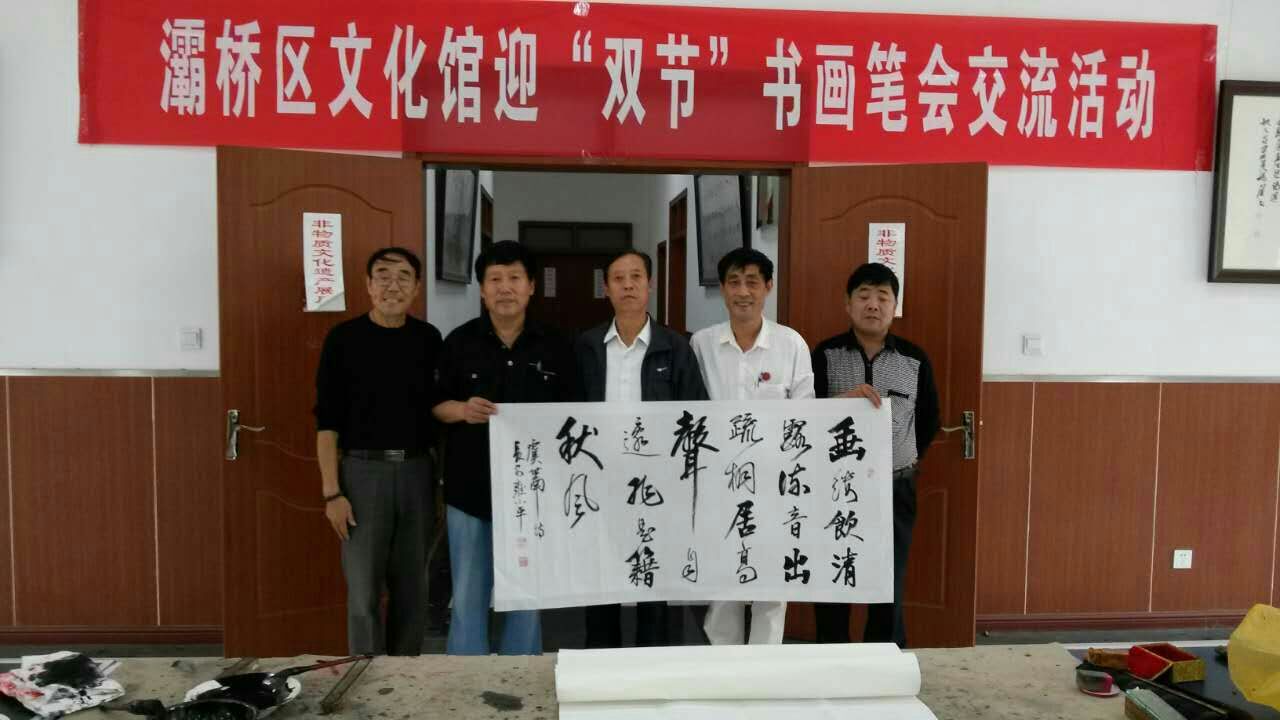 灞桥区文化馆迎“双节”书画笔会交流活动
非物质文化遗产展厅
非物质文
垂緌飲清
露流音出
疏桐居高
聲自
遠非是籍
秋風
虞世南詩